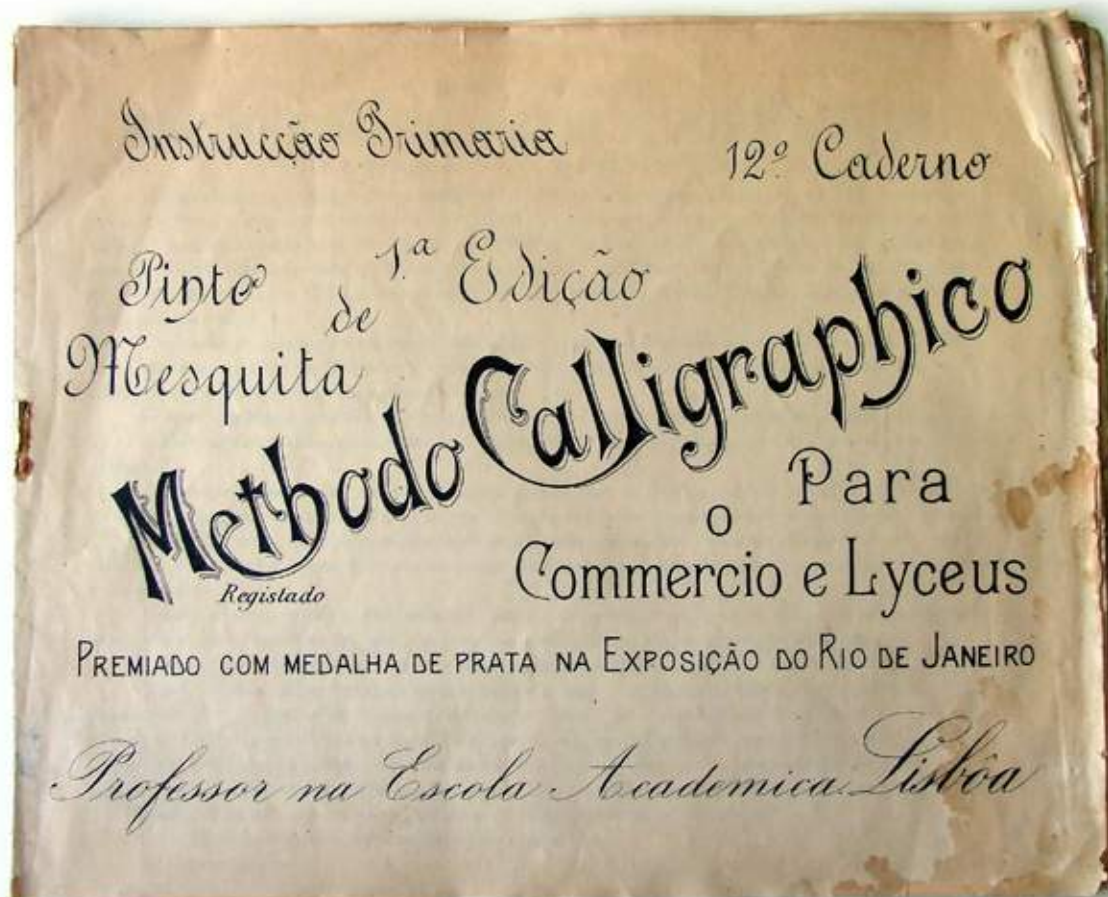 Instrucção Primaria
12º Caderno
1.ª Edição
Pinto de Mesquita
Methodo Calligraphico
Registado
Para
o
Commercio e Lyceus
PREMIADO COM MEDALHA DE PRATA NA EXPOSIÇÃO DO RIO DE JANEIRO
Professor na Escola Academica Lisbôa